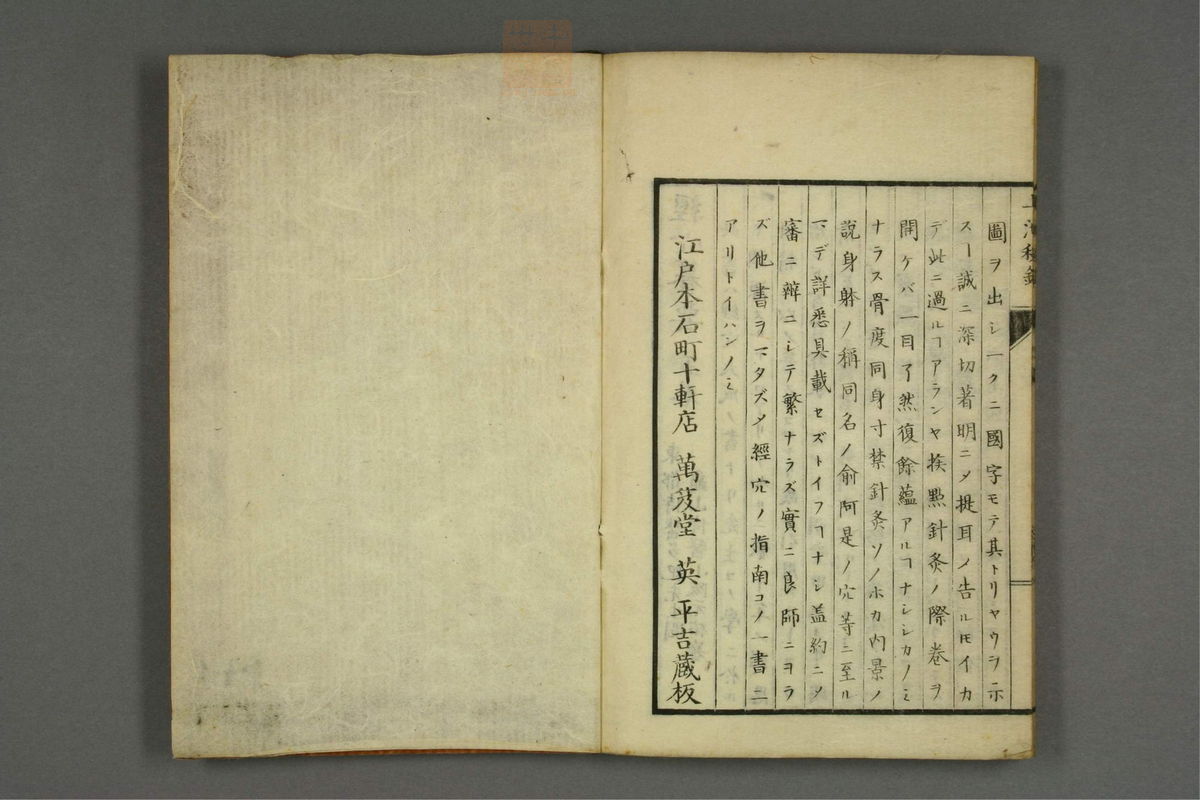 圖ヲ出シ一々ニ國字モテ其トリヤウヲ示
スヿ誠ニ深切著明ニメ提耳ノ告ル𪜈イカ
デ此ニ過ルヿアランヤ挨點針灸ノ際卷ヲ
開ケバ一目了然復餘蘊アルヿナシシカノミ
ナラス骨度同身寸禁針灸ソノホカ內景ノ
說身躰ノ稱同名ノ俞阿是ノ穴等ニ至ル
マデ詳悉具載セズトイフヿナシ盖約ニメ
審ニ辨ニシテ繁ナラズ實ニ良師ニヨラ
ズ他書ヲマタズメ經穴ノ指南コノ一書ニ
アリトイハンノミ
江戸本石町十軒店 萬笈堂 英 平吉藏板